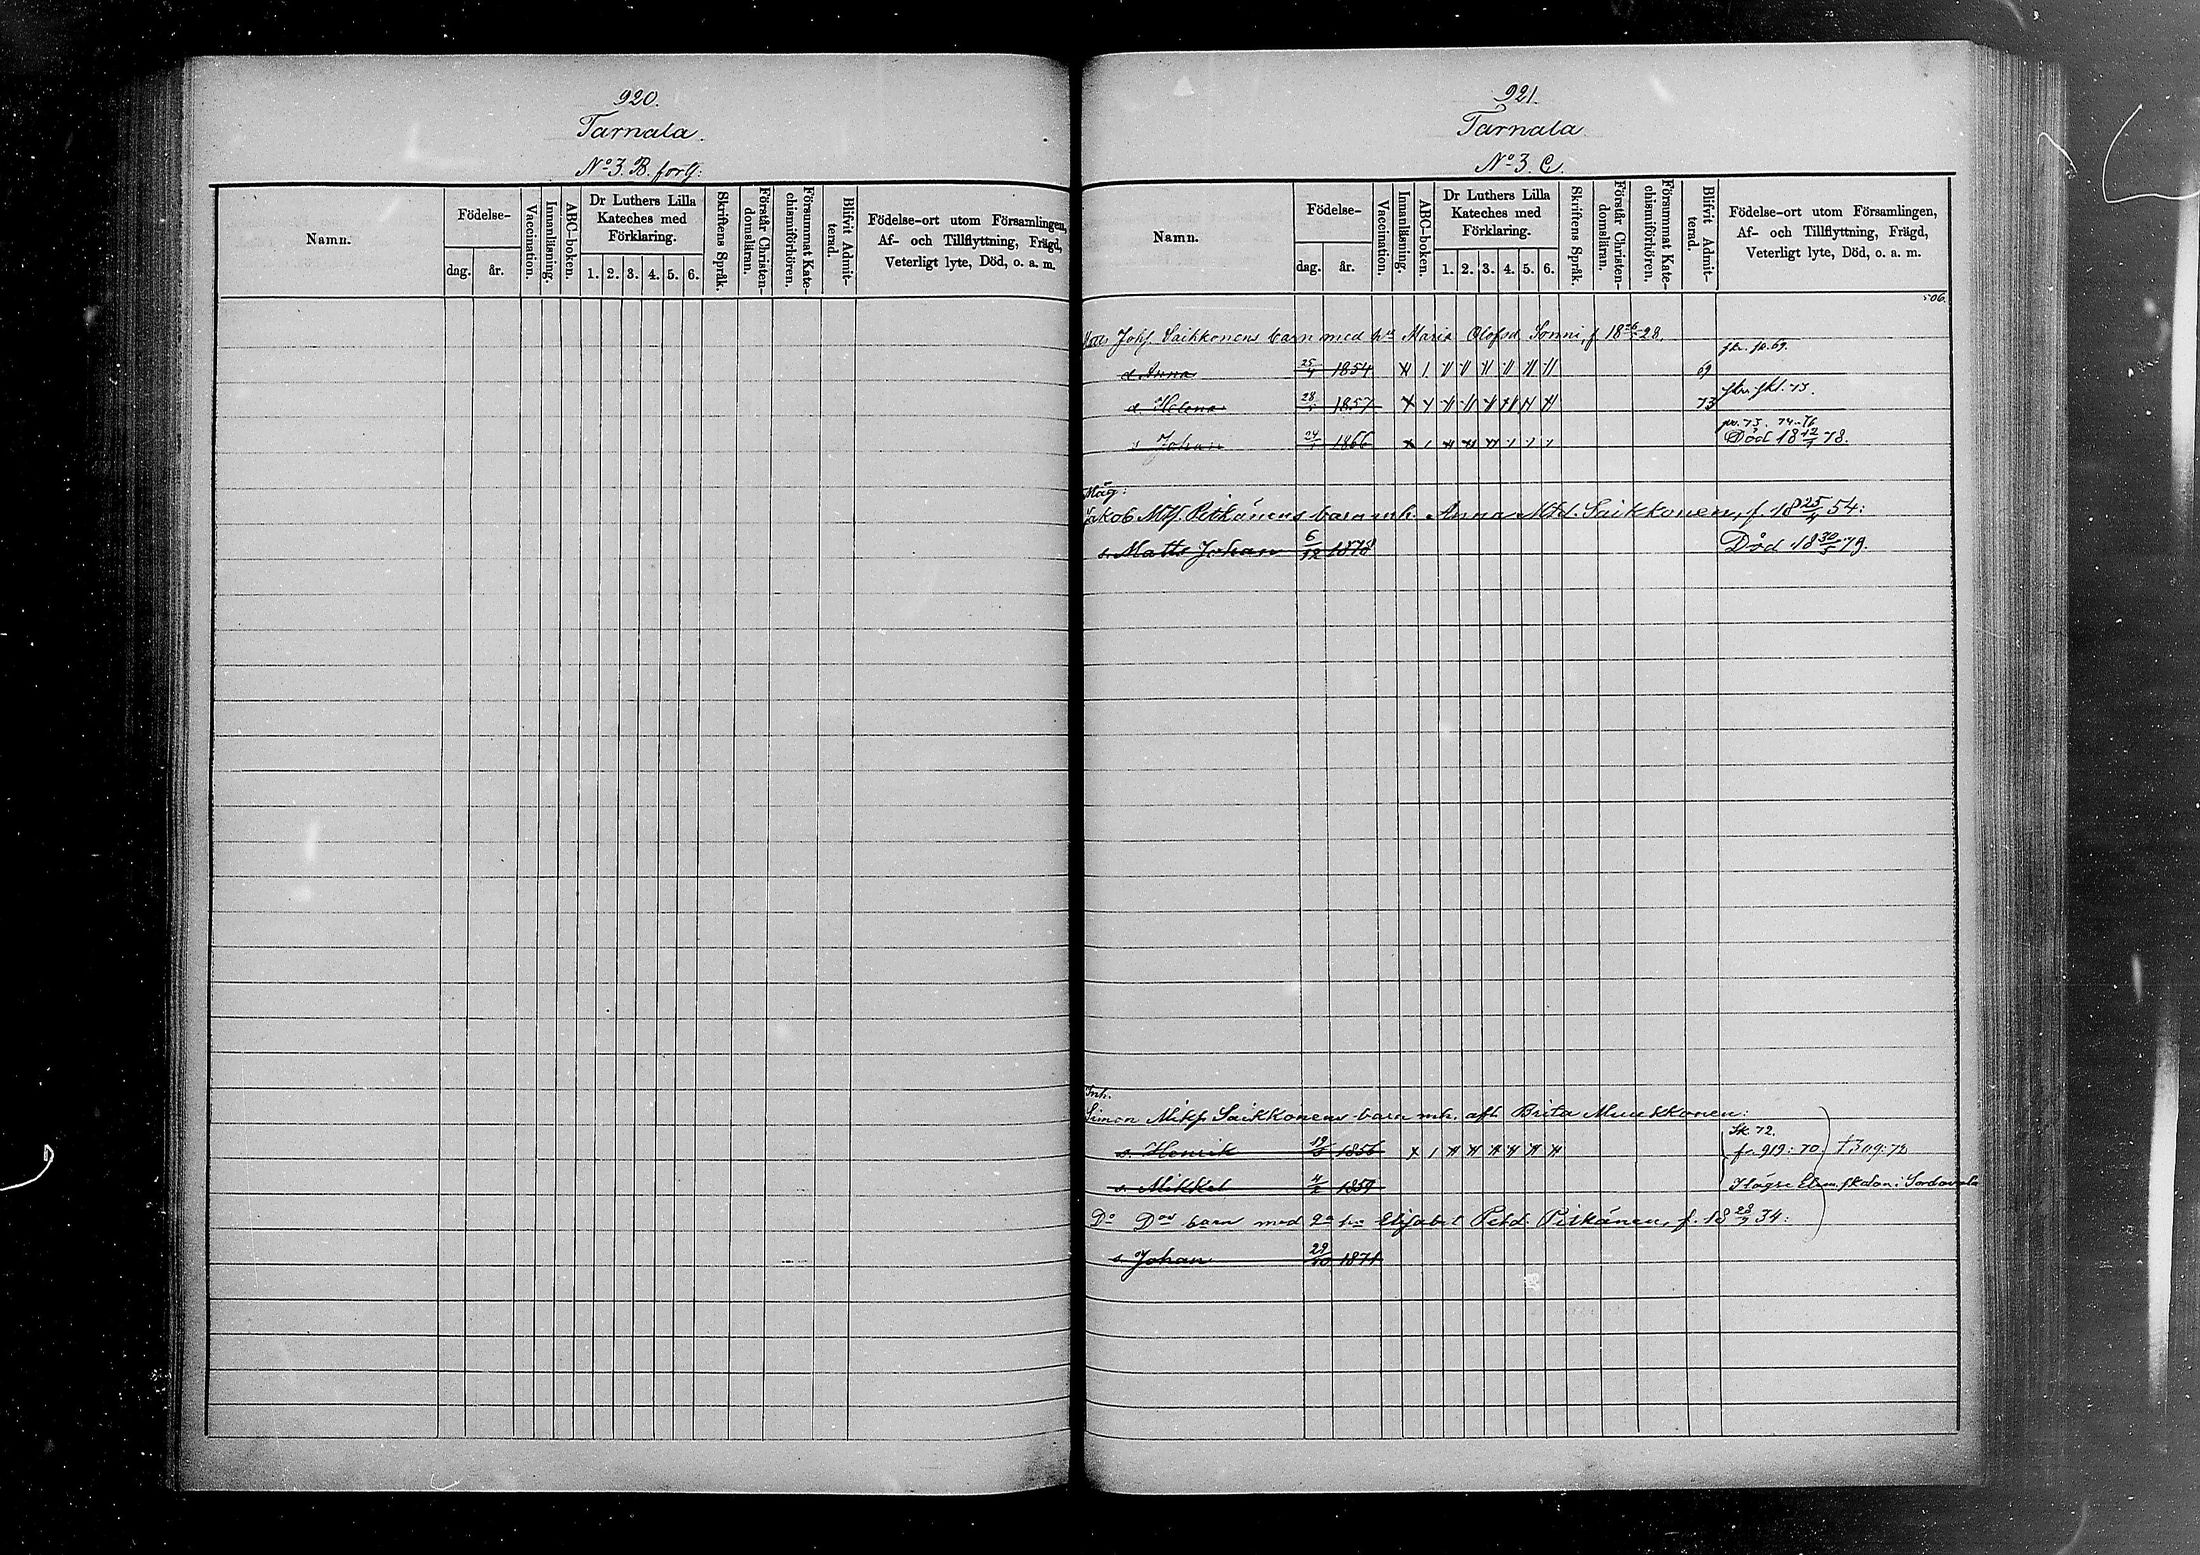 920.
Tarnala.
No 3. B. forts:
Namn.
Födelse-
dag. år.
Vaccination.
Innanläsning.
ABC-boken.
Dr Luthers Lilla
Kateches med
Förklaring.
1. 2. 3. 4. 5. 6.
Skriftens Språk.
Förstår Christen-
domsläran.
Försummat Kate-
chismiförhören.
Blifvit Admit-
terad.
Födelse-ort utom Församlingen,
Af- och Tillflyttning, Frägd,
Veterligt lyte, Död, o. a. m.
921.
Tarnala
No 3. C.
Namn.
Födelse-
dag. år.
Vaccination.
Innanläsning.
ABC-boken.
Dr Luthers Lilla
Kateches med
Förklaring.
1. 2. 3. 4. 5. 6.
Skriftens Språk.
Förstår Christen-
domsläran.
Försummat Kate-
chismiförhören.
Blifvit Admit-
terad.
Födelse-ort utom Församlingen,
Af- och Tillflyttning, Frägd,
Veterligt lyte, Död, o. a. m.
Johs. Saikkonens barn med hu Maria Olofsd. Sonni, f 18 28.
d. Anna 25/4 1854 69
d. Helena 28 1857 73
73. 74-76
s. Johan 24 1866 Död 18 12/7 78.
Måg:
Jakob Mts. Pitkänens barn mh. Anna Mtsd. Saikkonen, f 18 25/4 54:
s. Matts Johan 6/12 1878 Död 18 30/5 79.
Inh.
Simon Miks. Saikkonens barn mh. afl. Brita Muukkonen:
Sk. 72.
s. Henrik 19 1856 fr. 919: 70
s. Mikkel 4 1859 i Sordavala
Do Dos barn med 2a hu Elisabet Petd. Pitkänen, f. 18 23/2 34:
s. Johan 29/10 1871